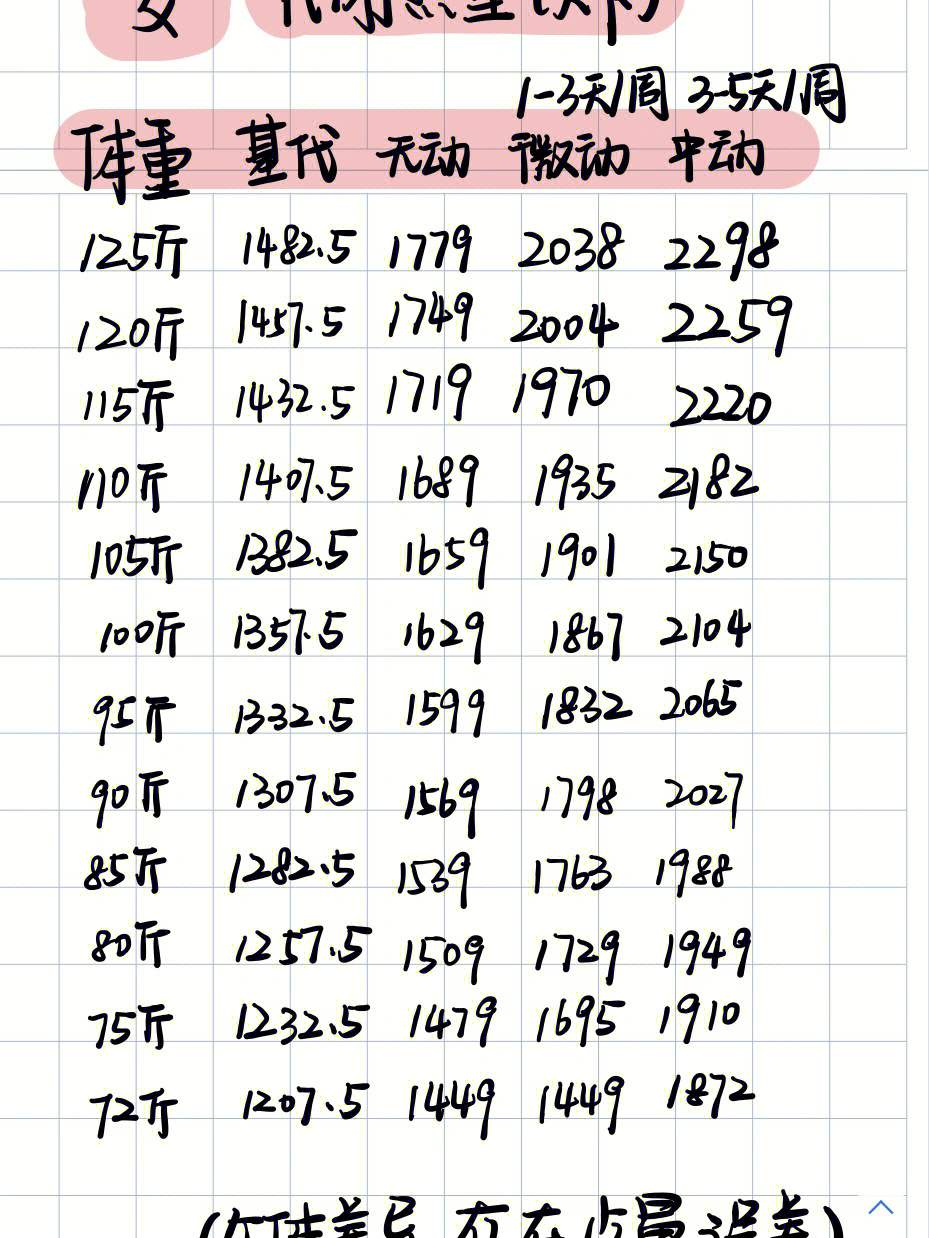 女 代谢热量(以下)
1-3天/周 3-5天/周
体重 基代 无动 微动 中动
125斤 1482.5 1779 2038 2298
120斤 1457.5 1749 2004 2259
115斤 1432.5 1719 1970 2220
110斤 1407.5 1689 1935 2182
105斤 1382.5 1659 1901 2150
100斤 1357.5 1629 1867 2104
95斤 1332.5 1599 1832 2065
90斤 1307.5 1569 1798 2027
85斤 1282.5 1539 1763 1988
80斤 1257.5 1509 1729 1949
75斤 1232.5 1479 1695 1910
72斤 1207.5 1449 1449 1872
(个体差异 存在少量误差)